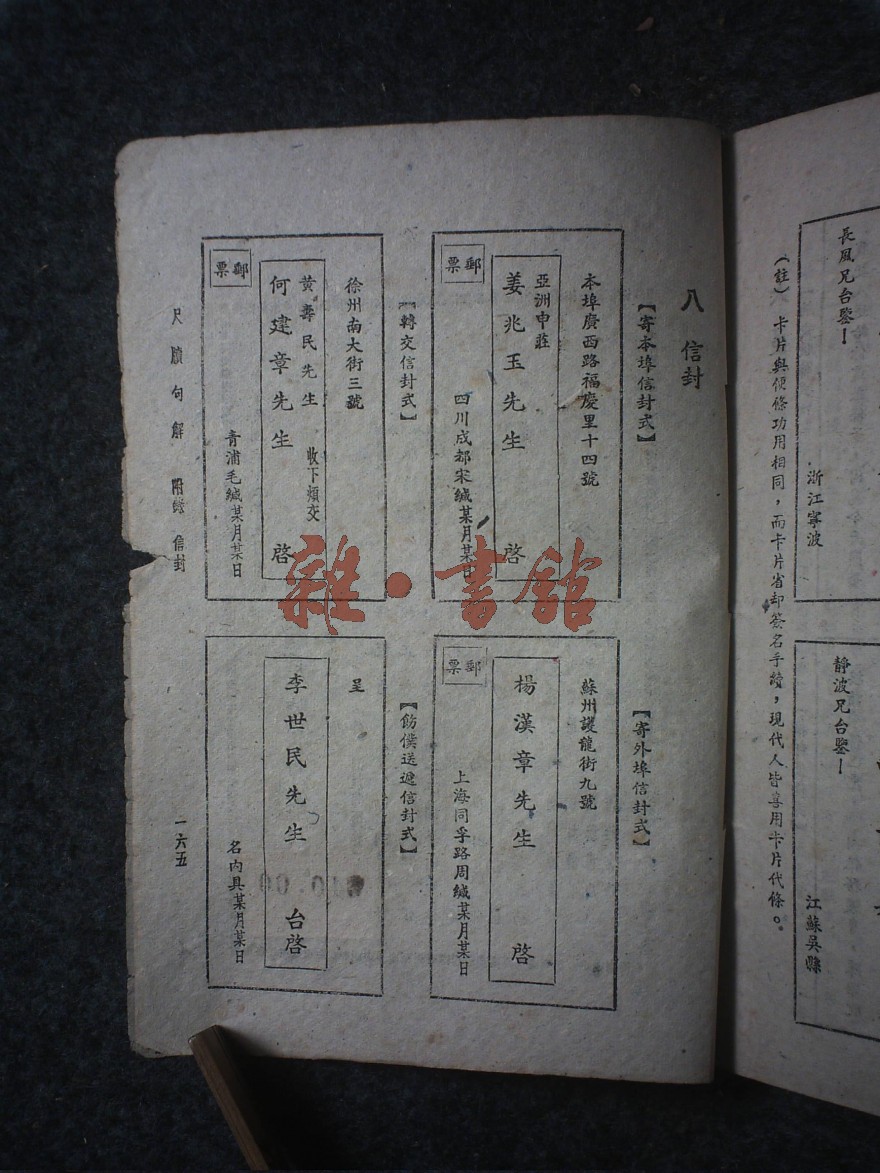 江蘇吳縣
靜波兄台鑒！
浙江寧波
長風兄台鑒！
（註） 卡片與便條功用相同，而卡片省却簽名手續，現代人皆喜用卡片代條。
八 信封
【寄本埠信封式】
本埠廣西路福慶里十四號
亞洲申莊
姜兆玉先生 啓
四川成都宋緘某月某日
郵票
【寄外埠信封式】
蘇州護龍街九號
楊漢章先生 啓
上海同孚路周緘某月某日
郵票
【轉交信封式】
徐州南大街三號
黃壽民先生 收下煩交
何建章先生 啓
青浦毛緘某月某日
郵票
【飭僕送遞信封式】
呈
李世民先生 台啓
名內具某月某日
尺牘句解 附錄 信封
一六五
雜·書館